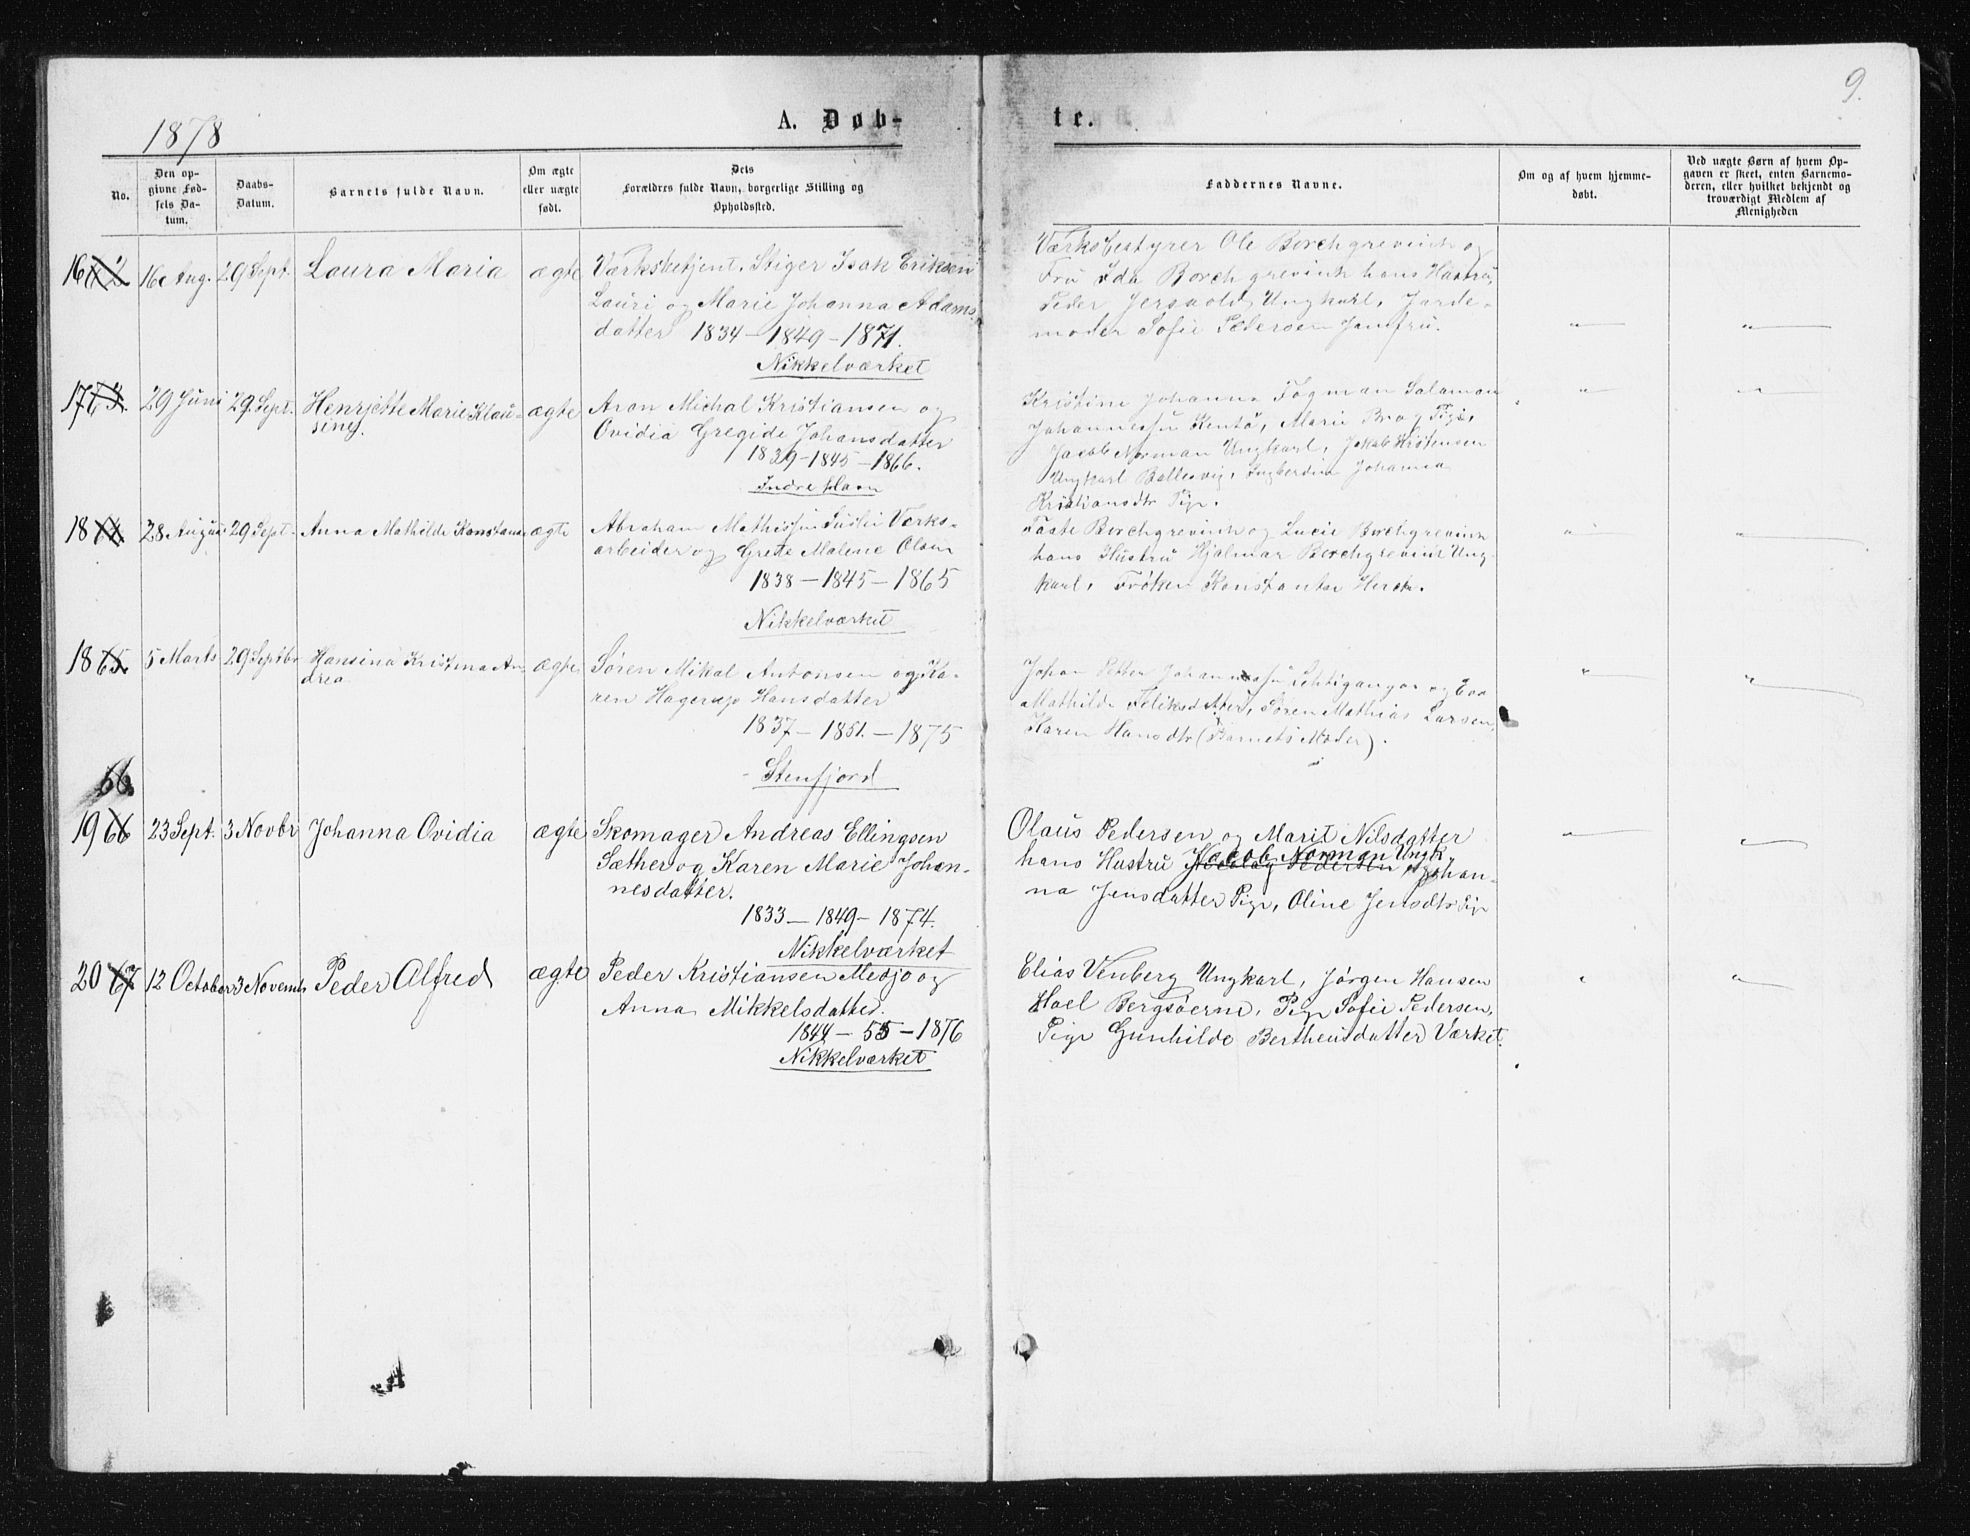 9.
1878
A. Døb-
te.
No.
Den op-
givne Fød-
sels Da-
tum.
Daabs-
Datum.
Barnets fulde Navn.
Om ægte
eller uægte
født.
Dets
Forældres fulde Navn, borgerlige Stilling og
Opholdssted.
Faddernes Navne.
Om og af hvem hjemme-
døbt.
Ved uægte Børn af hvem Op-
gaven er skeet, enten Barnemo-
deren, eller hvilket bekjendt og
troværdigt Medlem af
Menigheden
16
16 Aug.
29 Sept.
Laura Maria
ægte
Værksbetjent, Stiger Isak Eriksen
Lauri og Marie Johanna Adams-
datter 1834 - 1849 - 1871.
Nikkelværket
Værksbestyrer Ole Borchgrevink og
Fru Ida Borchgrevink hans Hustru,
Peder Jersvold, Ungkarl, Jorde-
moder Sofie Pedersen Jomfru.
17 63.
29 Juni
29. Sept.
Henriette Marie Klau-
sine
ægte
Aron Michal Kristiansen og
Ovidia Gregide Johansdatter
1839 - 1845 - 1866.
Indre
Kristine Johanna Fogman Salamon
Johannessen Marie Bra Pige,
Jacob Norman Ungkarl, Jakob Kristensen
Ungkarl Ballesvig, Ingberdine Johanna
Kristiansdtr Pige.
18 64
28 August
29 Sept.
Anna Mathilde Konstanse
ægte
Abraham Mathissen Værks-
arbeider og Grete Malene Olsen
1838 - 1845 - 1865
Nikkelværket
Borchgrevink og Lucie Borchgrevink
hans Hustru Hjalmar Borchgrevink Ung-
karl, Frøken Konstantse
18 65.
5 Marts
29 Septbr
Hansina Kristina An-
drea
ægte
Søren Mikal Antonsen og Ka-
ren Hagerup Hansdatter
1837 - 1851. - 1875
Stenfjord
Johan Petter Johannessen og Eva
Mathilde Feliksdatter, Søren Mathias Larsen,
Karen Hansdtr (Barnets Moder).
66
19 66
23 Sept.
3 Novbr
Johanna Ovidia
ægte
Skomager Andreas Ellingsen
Sæther og Karen Marie Johan-
nesdatter.
1833 - 1849 - 1874.
Nikkelværket
Olaus Pedersen og Marit Nilsdatter
hans Hustru Jacob Norman Ungk. Johan-
na Jensdatter Pige, Oline Jensdtr Pige
20 67
12 October
3 Novemb
Peder Alfred
ægte
Peder Kristiansen Mesjo og
Anna Mikkelsdatter.
1844 - 55 - 1876
Nikkelværket
Elias Venberg Ungkarl, Jørgen Hansen
Hoel Bergsøerne, Pige Sofie Pedersen,
Pige Gunhilde Bertheusdatter Værket.